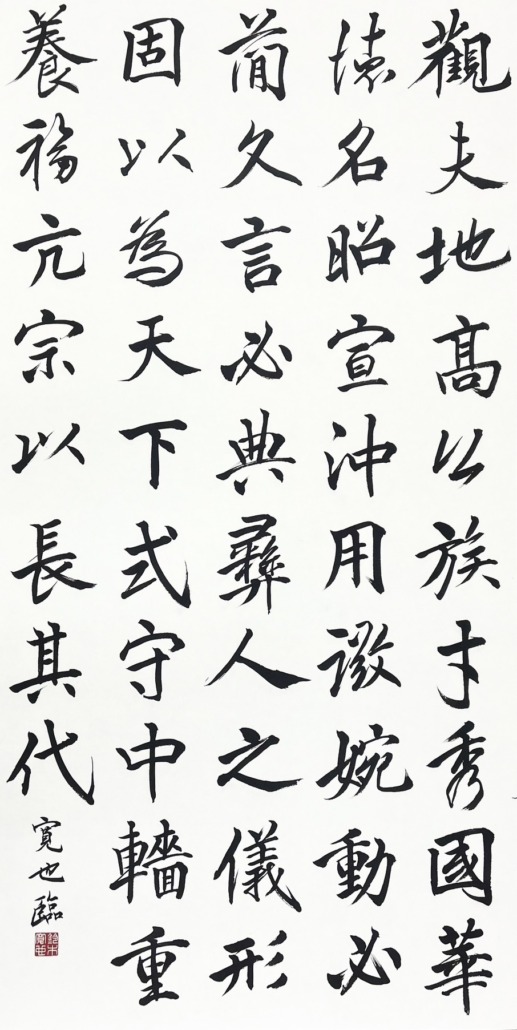 觀夫地高公族才秀國華
德名昭宣沖用徽婉動必
簡久言必典彝人之儀形
固以為天下式守中轖重
養福亢宗以長其代
寛也臨